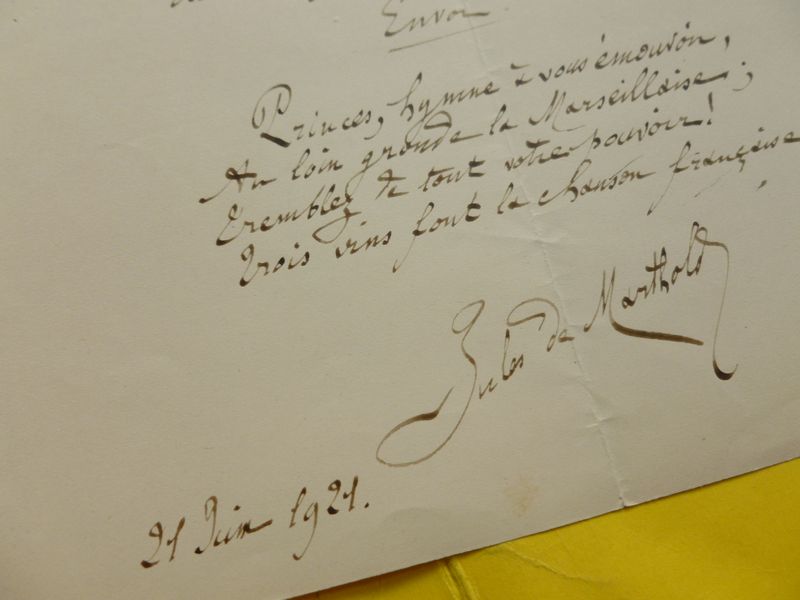 Envoi
Princes, hymne à vous émouvoir,
Au loin gronde la Marseillaise;
Tremblez de tout votre pouvoir!
Trois vins font la chanson française
Jules de Marthold
21 Juin 1921.